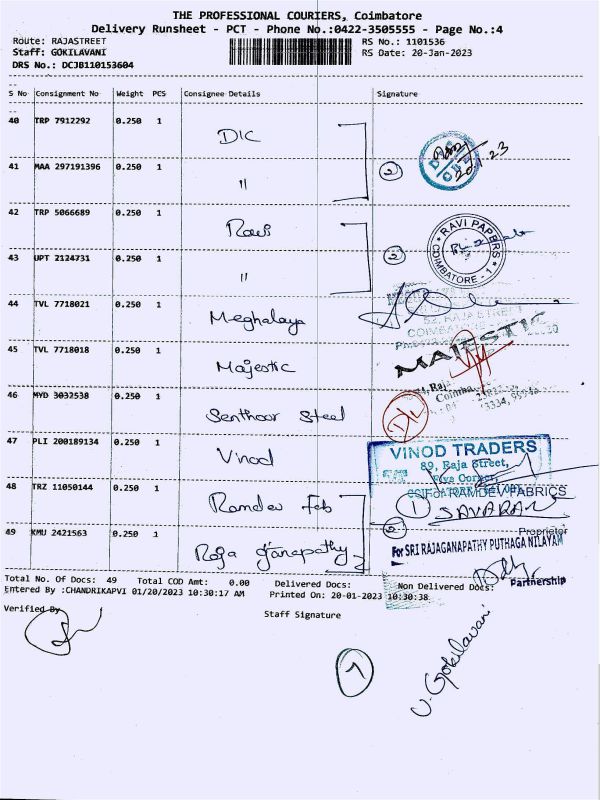 THE PROFESSIONAL COURIERS, Coimbatore
Delivery Runsheet - PCT - Phone No.:0422-3505555 - Page No.:4
Route: RAJASTREET RS No.: 1101536
Staff: GOKILAVANI RS Date: 20-Jan-2023
DRS No.: DCJB110153604
S No Consignment No Weight PCS Consignee Details Signature
40 TRP 7912292 0.250 1 DIC
41 MAA 297191396 0.250 1 "
2
20/1/23
42 TRP 5066689 0.250 1 Ravi
RAVI PAPERS
COIMBATORE - 1
43 UPT 2124731 0.250 1 "
2
44 TVL 7718021 0.250 1 Meghalaya
52, RAJA STREET
45 TVL 7718018 0.250 1 Majestic
MAJESTIC
46 MYD 3032538 0.250 1 Senthoor Steel
47 PLI 200189134 0.250 1 Vinod
VINOD TRADERS
89, Raja Street,
Five Corner,
48 TRZ 11050144 0.250 1 Ramdev Fab
For RAMDEV FABRICS
1 SAVARAN
Proprietor
49 KMU 2421563 0.250 1 Raja ganapathy
2
For SRI RAJAGANAPATHY PUTHAGA NILAYAM
Partnership
Total No. Of Docs: 49 Total COD Amt: 0.00 Delivered Docs: Non Delivered Docs:
Entered By :CHANDRIKAPVI 01/20/2023 10:30:17 AM Printed On: 20-01-2023 10:30:38
Verified By Staff Signature
7
U. Gokilavani